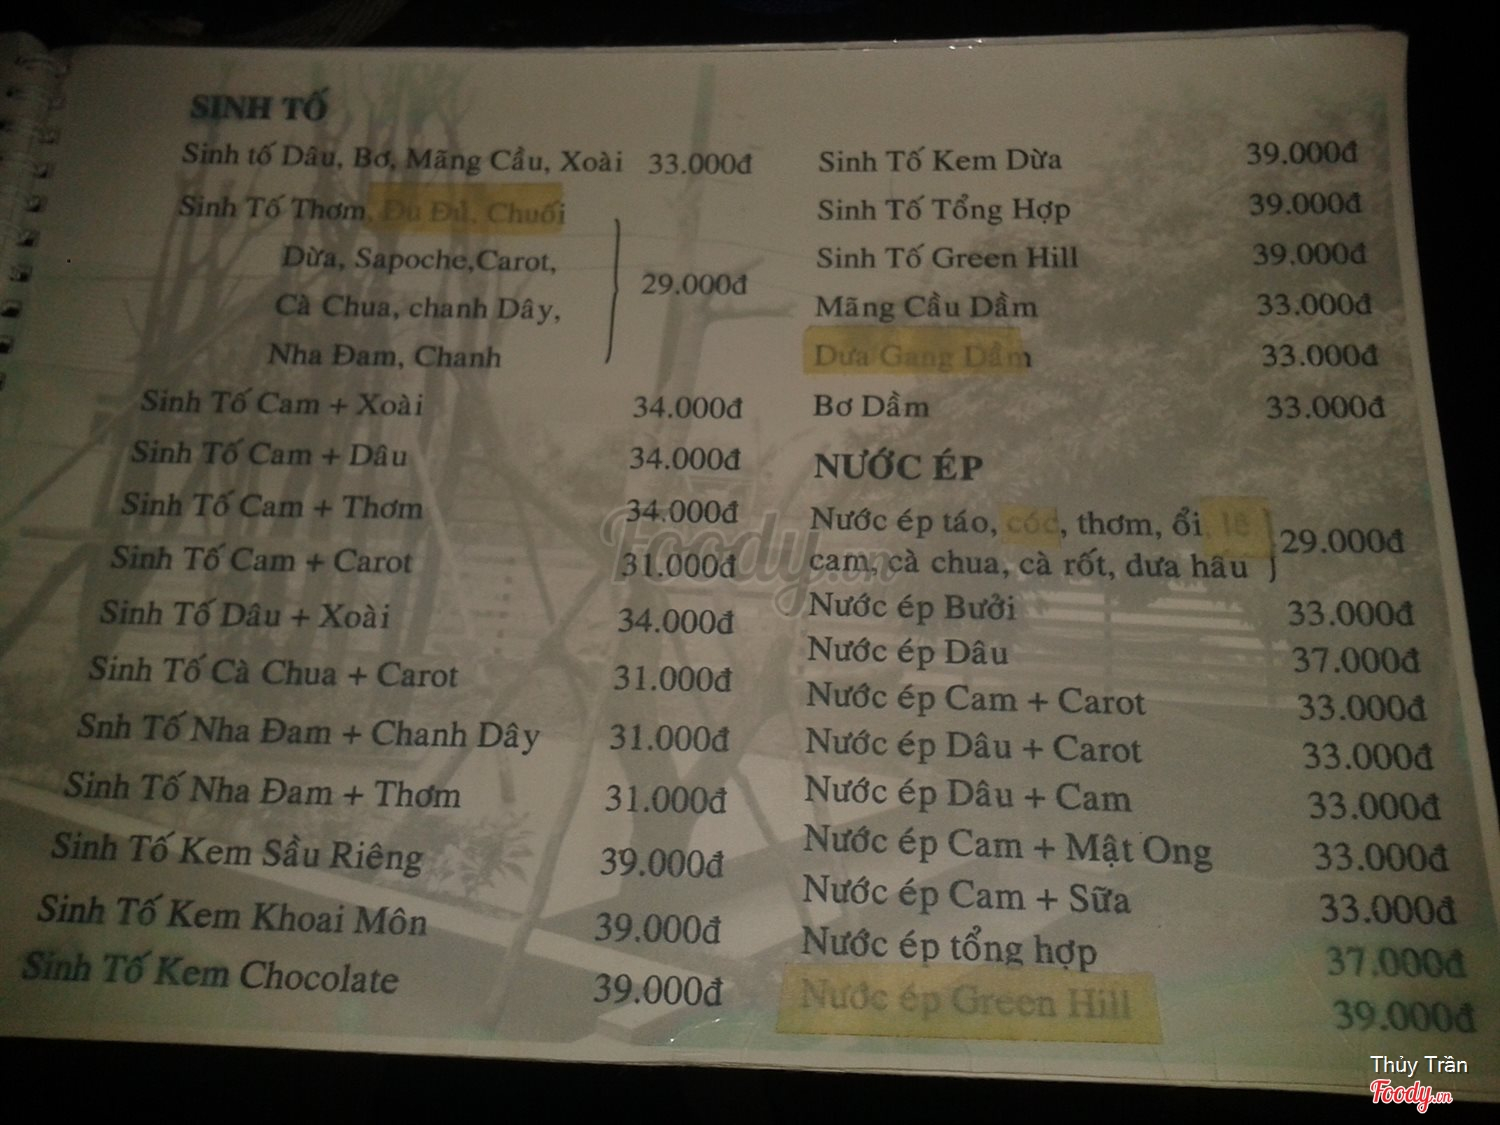 SINH TỐ
Sinh tố Dâu, Bơ, Mãng Cầu, Xoài 33.000đ
Sinh Tố Thơm, Đu Đủ, Chuối
Dừa, Sapoche,Carot,
29.000đ
Cà Chua, chanh Dây,
Nha Đam, Chanh
Sinh Tố Cam + Xoài 34.000đ
Sinh Tố Cam + Dâu 34.000đ
Sinh Tố Cam + Thơm 34.000đ
Sinh Tố Cam + Carot 31.000đ
Sinh Tố Dâu + Xoài 34.000đ
Sinh Tố Cà Chua + Carot 31.000đ
Snh Tố Nha Đam + Chanh Dây 31.000đ
Sinh Tố Nha Đam + Thơm 31.000đ
Sinh Tố Kem Sầu Riêng 39.000đ
Sinh Tố Kem Khoai Môn 39.000đ
Sinh Tố Kem Chocolate 39.000đ
Sinh Tố Kem Dừa 39.000đ
Sinh Tố Tổng Hợp 39.000đ
Sinh Tố Green Hill 39.000đ
Mãng Cầu Dầm 33.000đ
Dưa Gang Dầm 33.000đ
Bơ Dầm 33.000đ
NƯỚC ÉP
Nước ép táo, cóc, thơm, ổi, lê
29.000đ
cam, cà chua, cà rốt, dưa hấu
Nước ép Bưởi 33.000đ
Nước ép Dâu 37.000đ
Nước ép Cam + Carot 33.000đ
Nước ép Dâu + Carot 33.000đ
Nước ép Dâu + Cam 33.000đ
Nước ép Cam + Mật Ong 33.000đ
Nước ép Cam + Sữa 33.000đ
Nước ép tổng hợp 37.000đ
Nước ép Green Hill 39.000đ
Foody.vn
Thủy Trần
Foody.vn